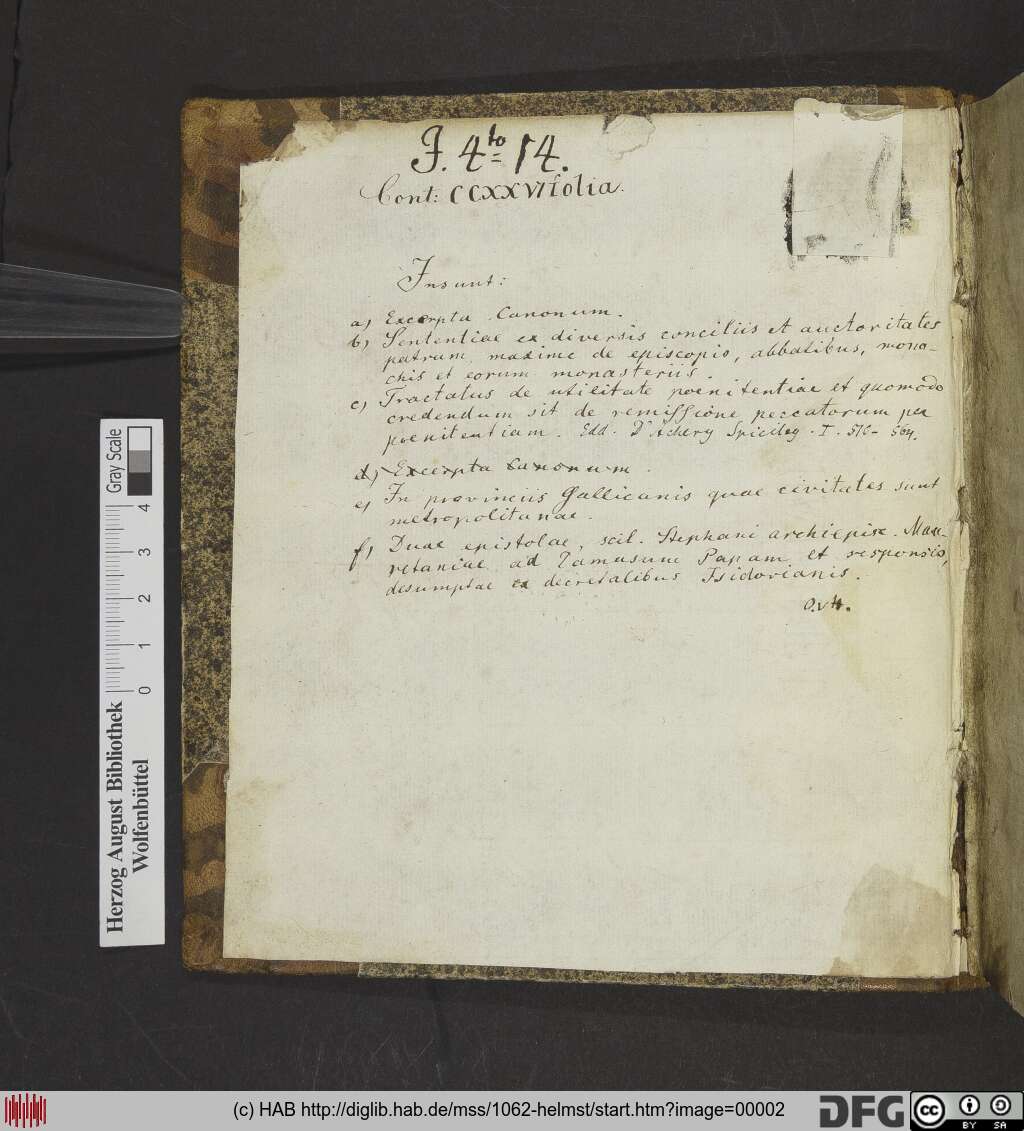 J. 4to 14.
Cont: CCXXVI folia.
Insunt:
a) Excerpta Canonum.
b) Sententiae ex diversis conciliis et auctoritates
patrum, maxime de episcopis, abbatibus, mona-
chis et eorum monasteriis.
c) Tractatus de utilitate poenitentiae et quomodo
credendum sit de remissione peccatorum per
poenitentiam. Edd. D'Achery Spicileg. I. 510-564.
d) Excerpta Canonum.
e) In provinciis Gallicanis quae civitates sunt
metropolitanae.
f) Duae epistolae, scil. Stephani archiepisc. Mau-
retaniae ad Damasum Papam et responsio,
desumptae ex decretalibus Isidorianis.
O.v.H.
Gray Scale
4
3
2
1
0
Herzog August Bibliothek
Wolfenbüttel
(c) HAB http://diglib.hab.de/mss/1062-helmst/start.htm?image=00002
DFG
cc
BY SA